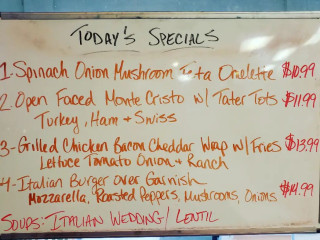 TODAY'S SPECIALS
1. Spinach Onion Mushroom Feta Omelette $10.99
2. Open Faced Monte Cristo w/ Tater Tots $11.99
Turkey, Ham + Swiss
3- Grilled Chicken Bacon Cheddar Wrap w/ Fries $13.99
Lettuce Tomato Onion + Ranch
4- Italian Burger over Garnish $14.99
Mozzarella, Roasted Peppers, Mushrooms, Onions
SOUPS: ITALIAN WEDDING / LENTIL